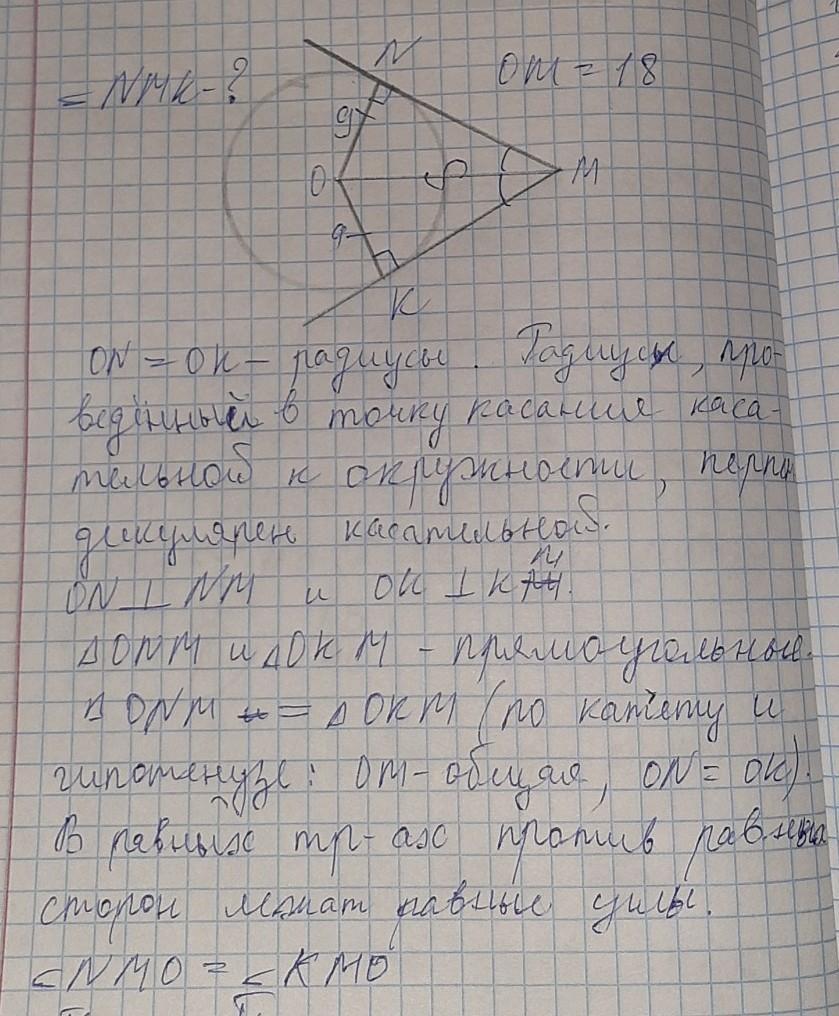 N
OM = 18
∠NMK - ?
9
O
M
9
K
ON = OK - радиусы. Радиусы, про-
ведённый в точку касания каса-
тельной к окружности, перпен
дикулярен касательной.
ON ⊥ NM и OK ⊥ KM.
△ONM и △OKM - прямоугольные.
△ONM = △OKM (по катету и
гипотенузе: OM - общая, ON = OK).
В равных тр-ах против равных
сторон лежат равные углы.
∠NMO = ∠KMO